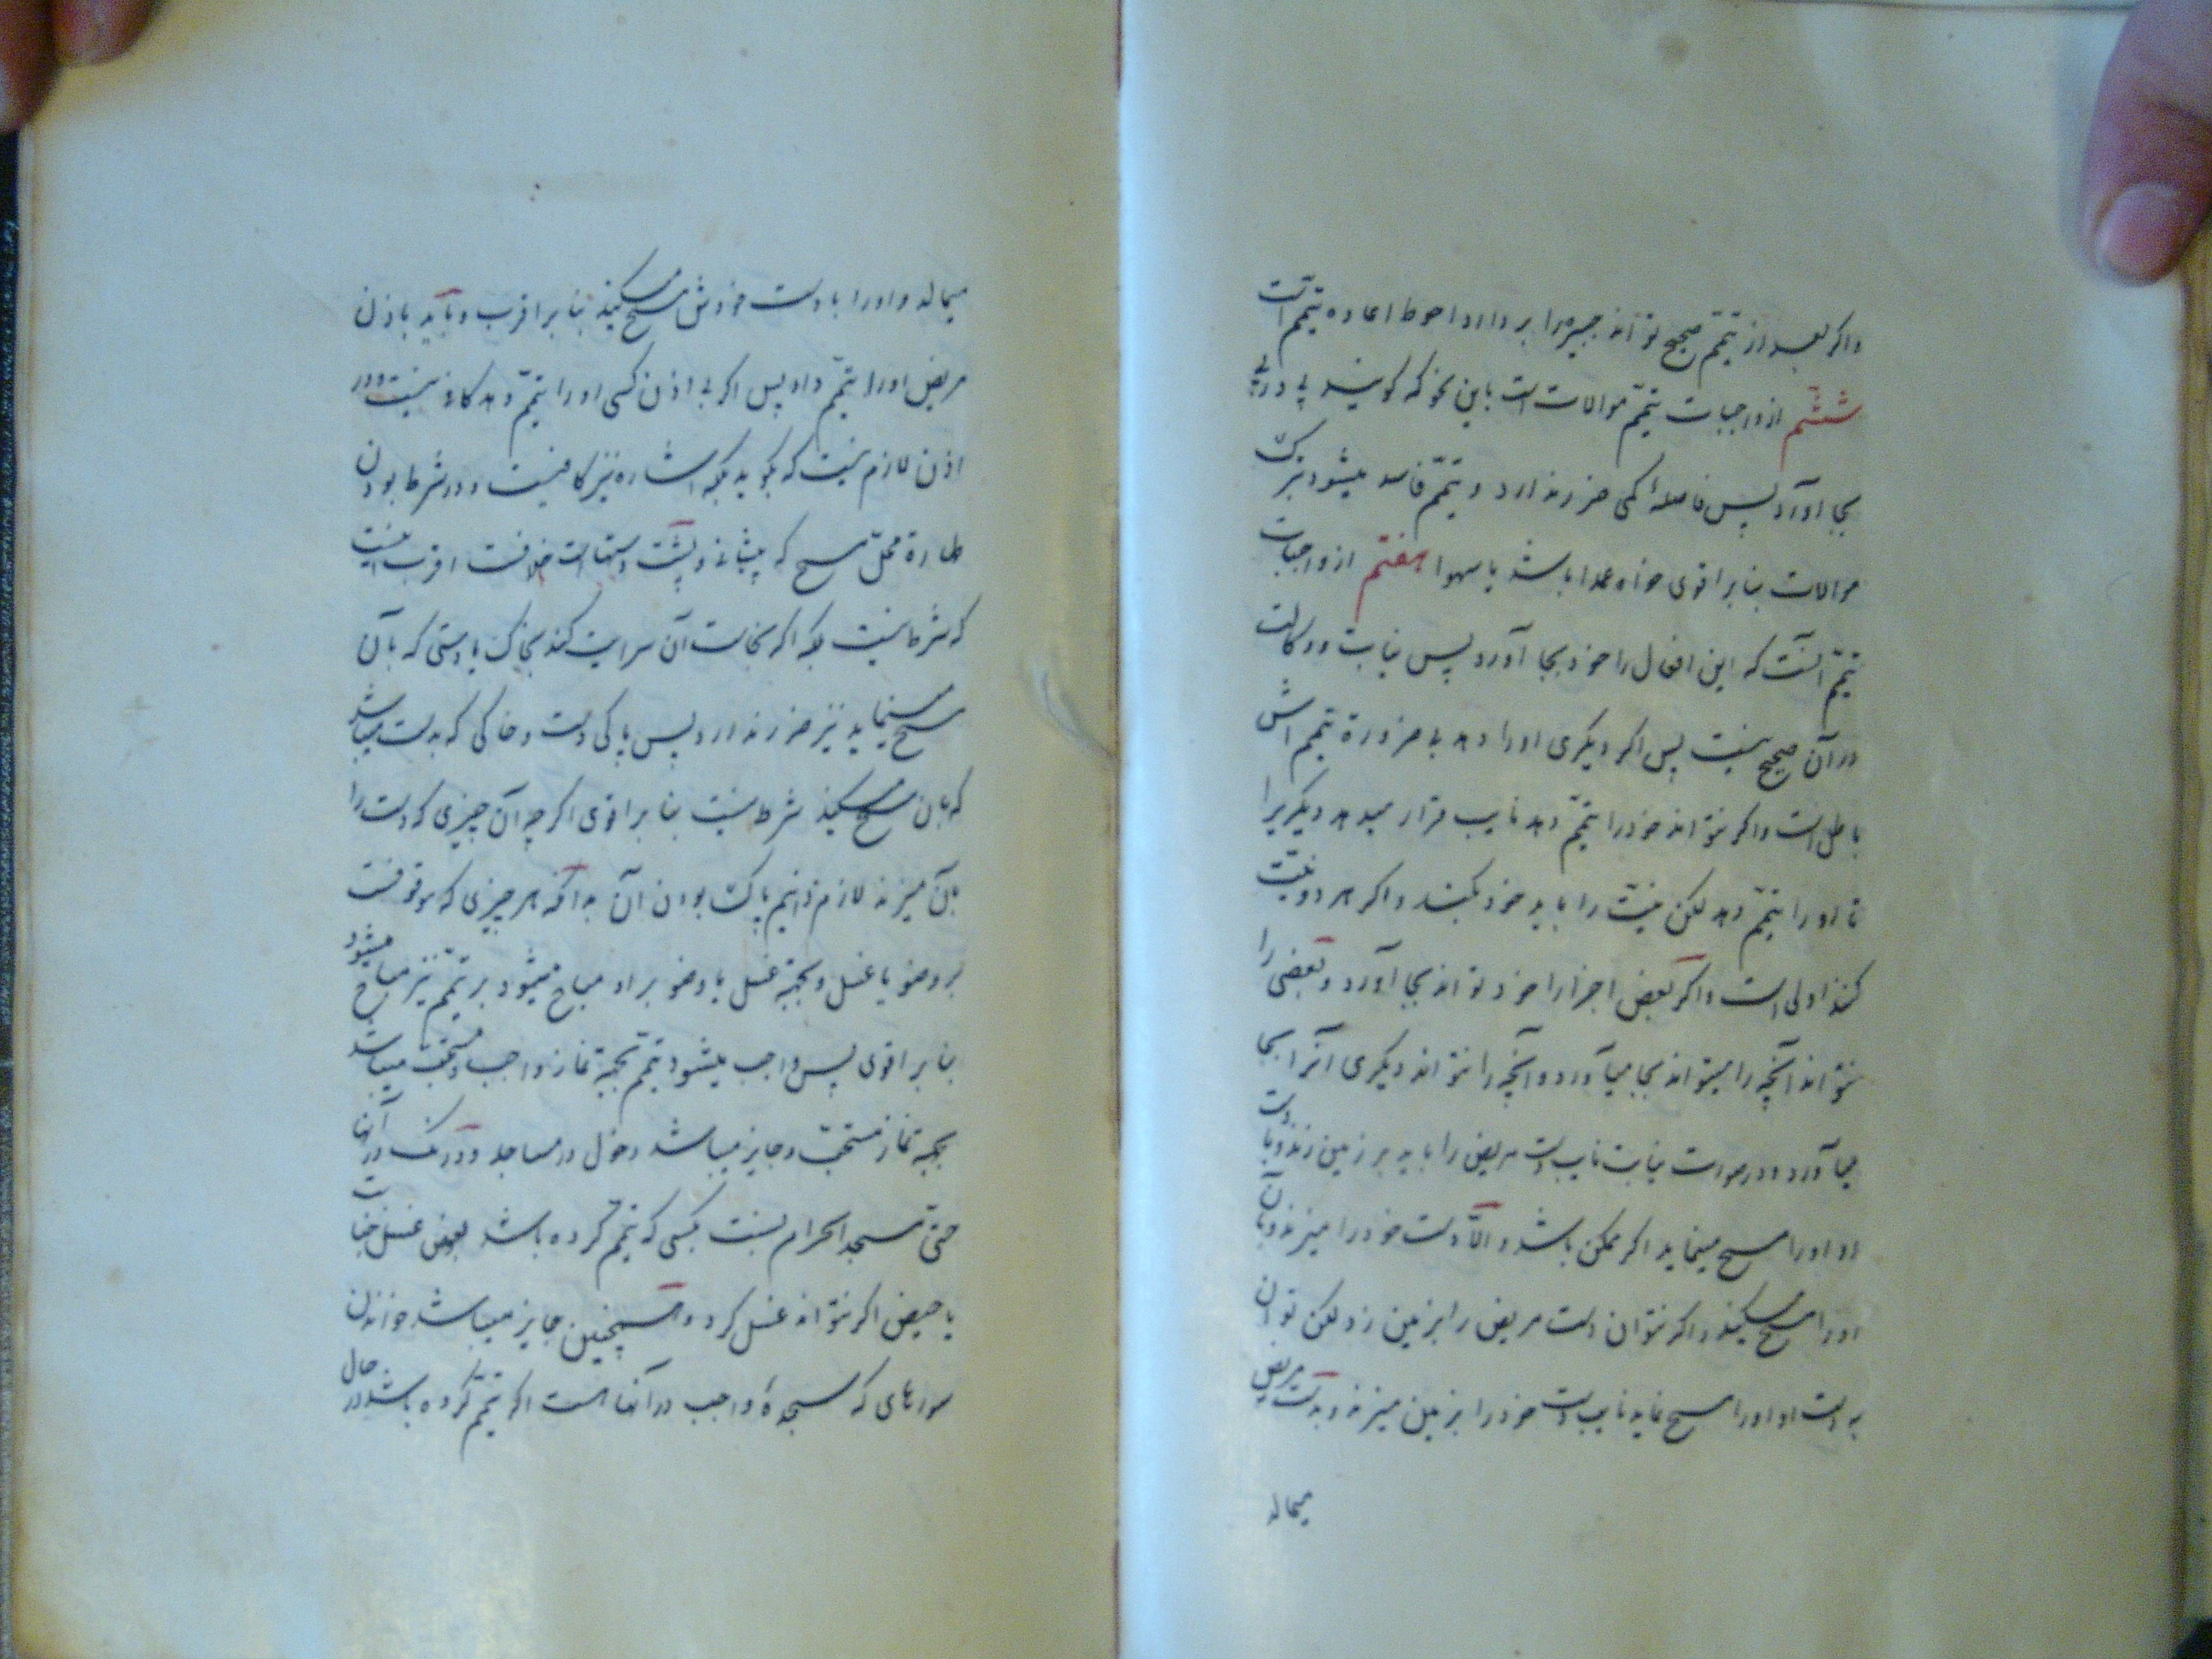 واکر بعد از تیمّم صحیح تواند جبیره را بر دارد احوط اعاده تیمّم است
ششم از واجبات تیمّم موالات است باین نحو که کویند پی در پی
بجا اورد پس فاصلهٔ کمی ضرر ندارد و تیمّم فاسد میشود بترک
موالات بنا بر اقوی خواه عمدا باشد یا سهوا هفتم از واجبات
تیمّم آنست که این افعال را خود بجا آورد پس نیابت و وکالت
در آن صحیح نیست پس اکر دیکری او را دهد بی ضرورة تیمم اش
باطل است و اکر نتواند خود را تیمّم دهد نایب قرار میدهد دیکریرا
تا او را تیمّم دهد لکن نیّت را باید خود بکند و اکر هر دو نیّت
کنند اولی است و اکر بعض اجزا را خود تواند بجا آورد و بعضی را
نتواند آنچه را میتواند بجا میآورد و آنچه را نتواند دیکری آنرا بجا
میآورد و در صورت نیابت نایب دست مریض را باید بر زمین زند و با دست
او او را مسح مینماید اکر ممکن باشد و الّا دست خود را میزند و بآن
او را مسح میکند و اکر نتوان دست مریض را بزمین زد لکن توان
به دست او او را مسح نماید نایب دست خود را بزمین میزند و بدست مریض
میمالد
میمالد و او را با دست خودش مسح میکند بنا بر اقرب و باید باذن
مریض او را تیمّم داد پس اکر بی اذن کسی او را تیمّم دهد کافی نیست و در
اذن لازم نیست که بکوید بلکه اشاره نیز کافیست و در شرط بودن
طهارة محلّ مسح که پیشانی و پشت دستها است خلافست اقرب اینست
که شرط نیست بلکه اکر نجاست آن سرایت کند بخاک یا دستی که بآن
مسح مینماید نیز ضرر ندارد پس پاکی دست و خاکی که بدست میباشد
که بان مسح میکند شرط نیست بنا بر اقوی اکر چه آن چیزی که دست را
بآن میزند لازم دانیم پاک بودن آن بدانکه هر چیزی که موقوفست
بر وضو یا غسل و بجهة غسل یا وضو بر او مباح میشود بر تیمّم نیز مباح میشود
بنا بر اقوی پس واجب میشود تیمّم بجهة نماز واجب و مستحبّ میباشد
بجهة نماز مستحبّ و جایز میباشد دخول در مساجد و درنک در آنها
حتّی مسجد الحرام نسبت بکسی که تیمّم کرده باشد بعوض غسل جنابت
یا حیض اکر نتواند غسل کرد و همچنین جایز میباشد خواندن
سورهای که سجدهٔ واجب در آنها است اکر تیمّم کرده باشد در حال